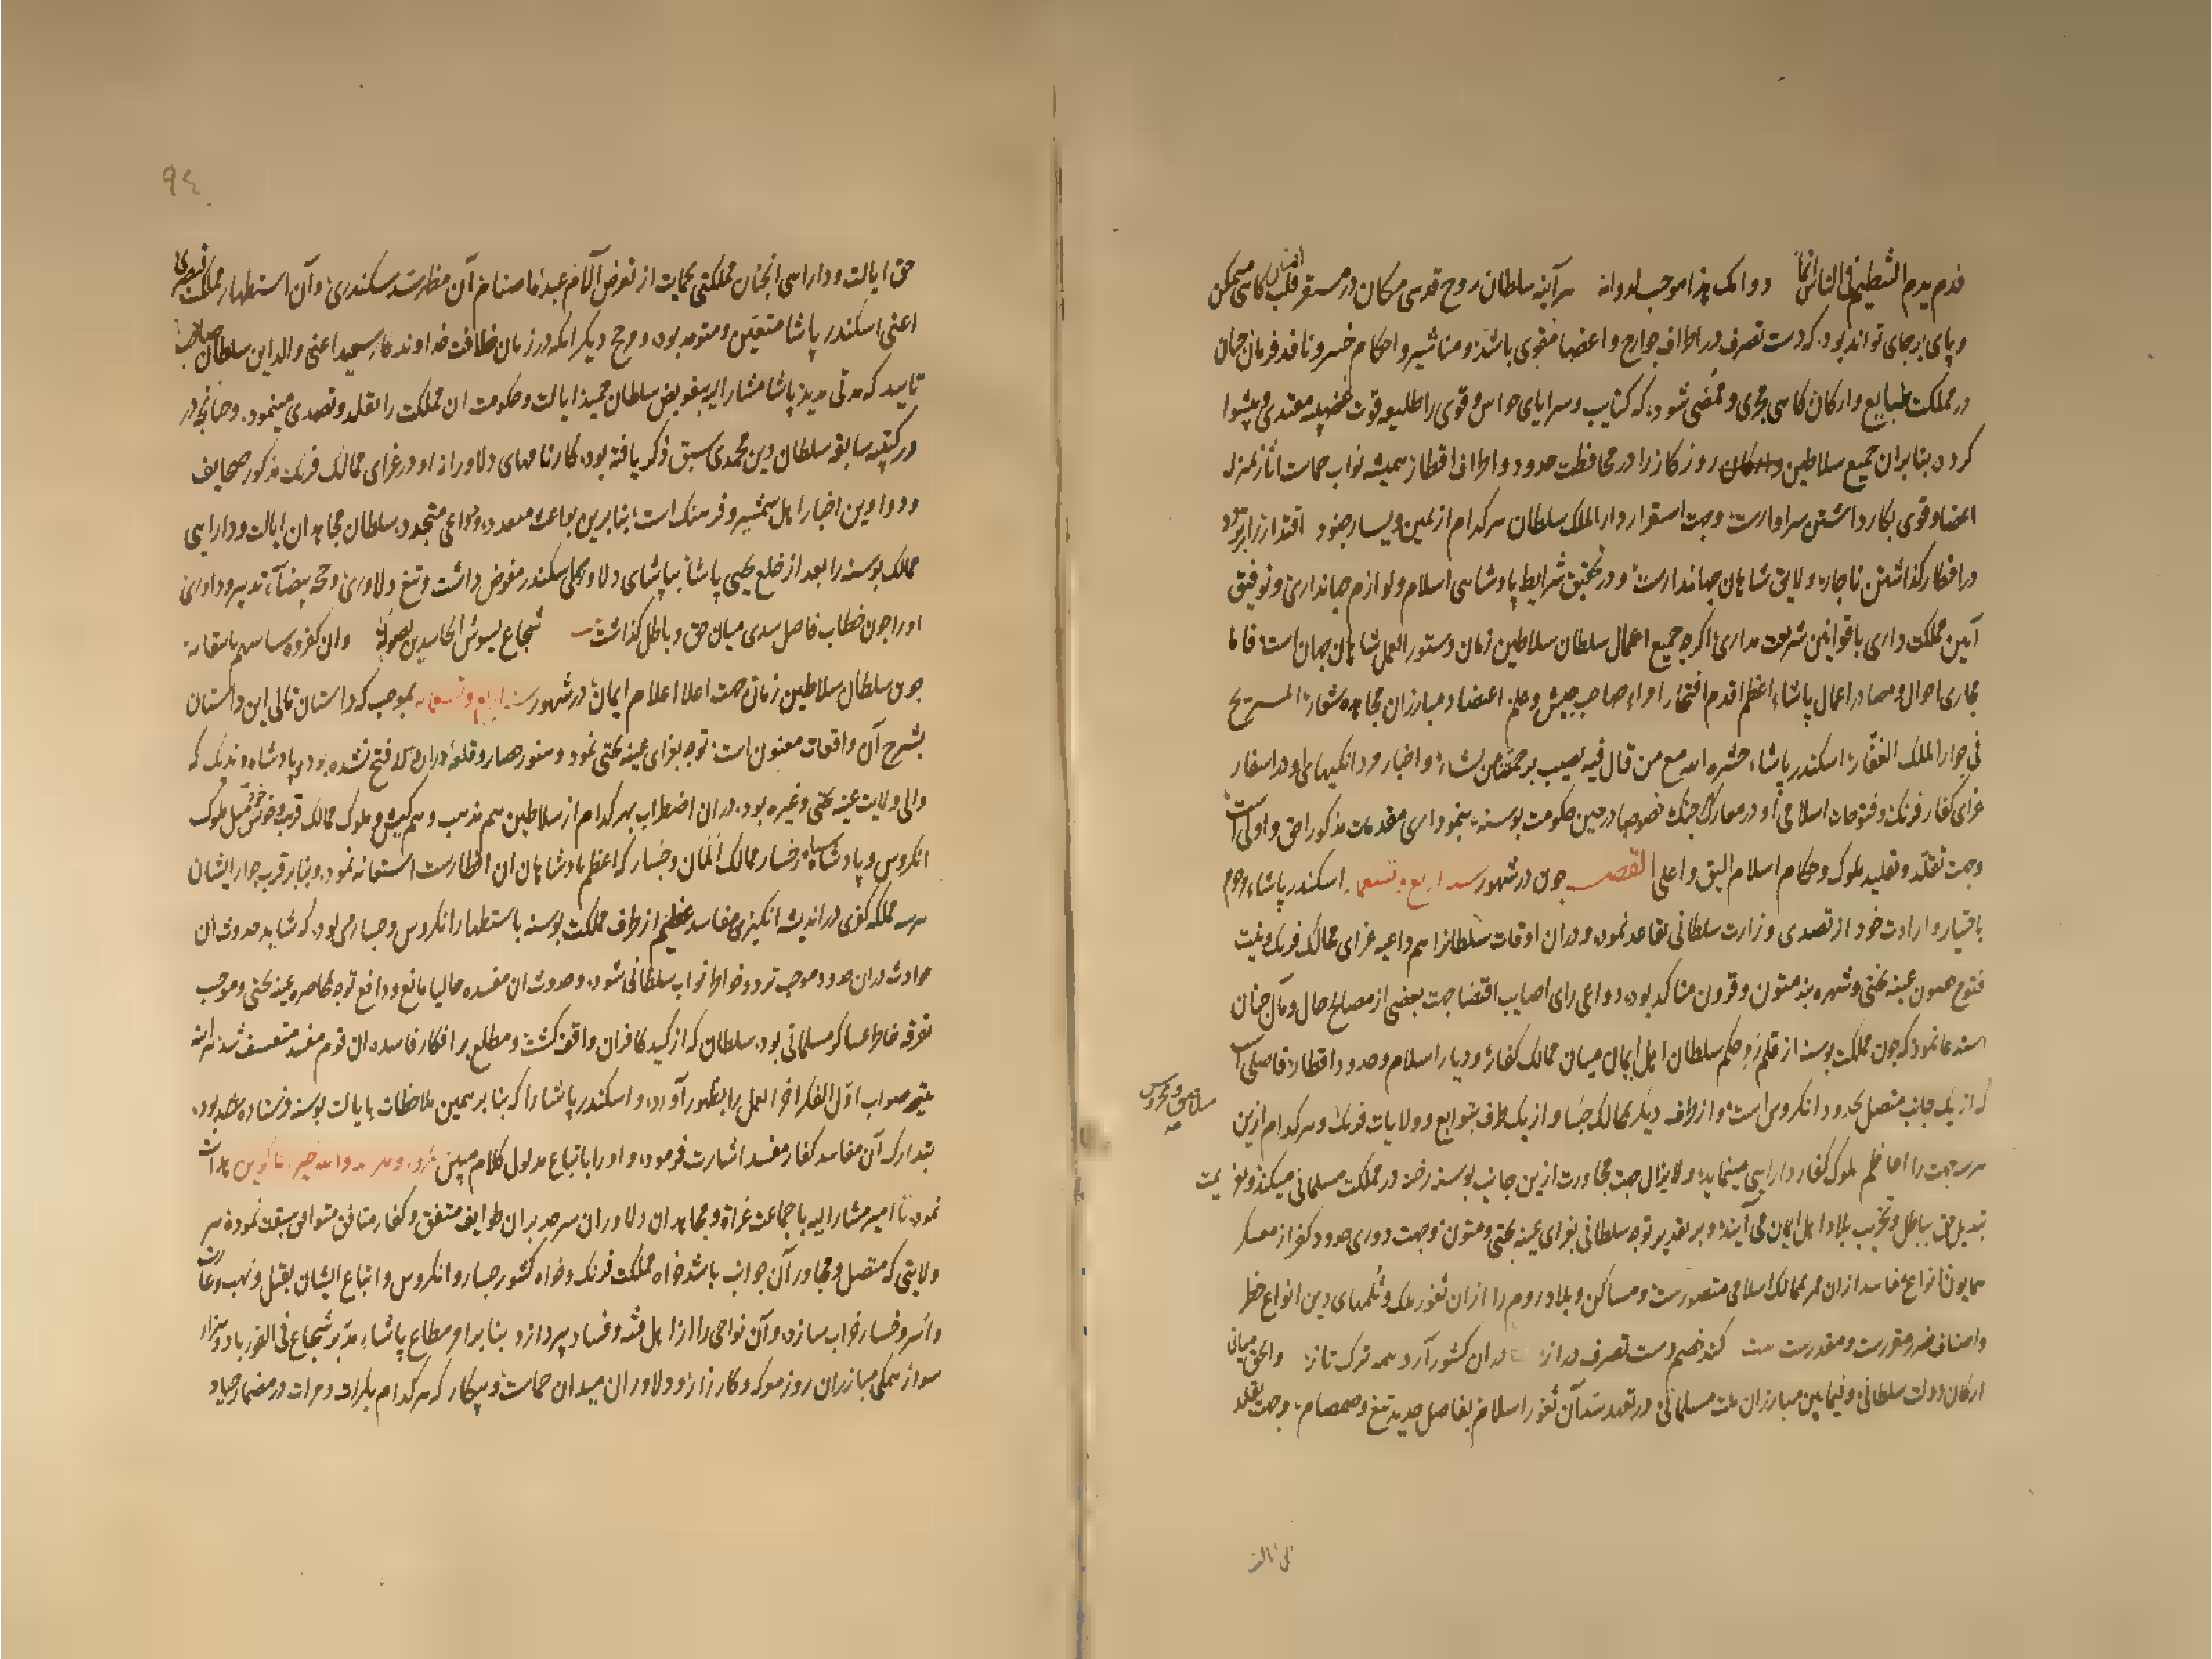 فدم یدم التنظیم فی الناس انما دواک هذا موجب لو دانه هر آینه سلطان روح قدسی مکان در مستقر قلب کاسی متمکن
و پای بر جای تواند بود که دست تصرف در اطراف جوارح و اعضا مقوی باشد و مناشیر و احکام خسرو نافذ فرمان جان
در مملکت طبایع و ارکان کاسی مجری و ممضی شود که کتایب و سرایای حواس و قوی را طلیعه قوت غضبیه مقتدی و پیشوا
کرده بنابران جمیع سلاطین روزکار را در محافظت حدود و اطراف اقطار همیشه نواب حمایت آثار بمنزله
اعضا و قوی بکار داشتن سزاوارست و جهت استقرار دار الملک سلطان هر کدام از یمین و یسار جنود اقتدار
در افکار کذاشتن ناچار ولایق شاهان جهاندارست و در تحقیق شرایط پادشاهی اسلام و لوازم جهانداری و توفیق
آیین مملکت داری با قوانین شریعت مداری اکرچه جمیع اعمال سلطان سلاطین زمان دستور العمل شاهان جهان است فاما
مجاری احوال و مصادر اعمال پاشاء اعظم اقدم افتخار امراء صاحب جیش و علم اعتضاد مبارزان مجاهده شعار المستریح
فی جوار الملک الغفار اسکندر پاشاء حشره الله مع من قال فیه نصیب برحمتنا من نشاء و اخبار مردانکیهای او در اسفار
غزای کفار فرنک و فتوحات اسلامی او در معارک جنک خصوصا در حین حکومت بوسنه بنموداری مقدمات مذکور احق و اولی است
و جهت تقلد و تقلید ملوک و حکام اسلام الیق و اعلی القصه چون در شهور سنه اربع و تسعمایه اسکندر پاشاء مرحوم
باختیار و ارادت خود از تصدی وزارت سلطانی تقاعد نموده و دران اوقات سلطانرا هم داعیه غزای ممالک فرنک و نیت
فتوح حصون عینه بختی و شهره بند متون و قرون متاکد بود دواعی رای اصایب اقتضا جهت بعضی از مصالح حال و مآل چنان
استدعا نمود که چون مملکت بوسنه از قلمرو حکم سلطان اهل ایمان میان ممالک کفار و دیار اسلام و حدود اقطار فاصلی است
که از یک جانب متصل بحدود انکروس است و از طرف دیکر بممالک جسار و از یک طرف بتوابع و ولایات فرنک و هر کدام ازین
هر سه جهت را اعاظم ملوک کفار دارایی مینماید و لایزال جهت مجاورت ازین جانب بوسنه رخنه در مملکت مسلمانی میکند و بعزیمت
تبدیل حق بباطل و تخریب بلاد اهل ایمان می آیند و بر تقدیر توجه سلطانی بغزای عینه بختی و متون و جهت دوری حدود کفر از معسکر
همایون انواع مفاسد ازان ممر بممالک اسلامی متصورست و مساکن و بلاد روم را ازان ثغور ملک و ثلمهای دین انواع خطر
و اصناف ضرر مقررست و مقدرست بیت کند خصم دست تصرف دراز دران کشور آرد همه ترک تاز و الحق میانی
ارکان دولت سلطانی و فیمابین مبارزان ملت مسلمانی در تعهد سد آن ثغور اسلام بفاصل حدید تیغ و صمصام و جهت تقلد
٩٤
حق ایالت و دارایی انچنان مملکتی بحمایت از تعرض آلام عبده اصنام آن مظهر سد سکندری و آن استظهار مملکت
اعنی اسکندر پاشا متعین و متوحد بود و مرجح دیکر آنکه در زمان خلافت خداوندکار سعید اعنی والد این سلطان صاحب
تایید که مدتی مدید پاشا مشار الیه بتفویض سلطان حمید ایالت و حکومت ان مملکت را تقلد و تصدی مینمود و چنانچه در
در کتیبه سابقه سلطان دین محمدی سبق ذکر یافته بود کارنامهای دلاورانه او در غزای ممالک فرنک مذکور صحایف
و دواوین اخبار اهل شمشیر و فرهنک است بنابرین بواعث متعدد و دواعی متجدد سلطان مجاهدان ایالت و دارایی
ممالک بوسنه را بعد از خلع یحیی پاشا بپاشای دلاور یعنی سکندر مفوض داشت و تیغ دلاوری و حجه بیضاء تدبیر و داوری
او را چون خطاب فاصل سدی میان حق و باطل کذاشت شجاع لسوس الحاسدین بصوله وان کفروه ساسهم بانتقامه
چون سلطان سلاطین زمان جهت اعلاء اعلام ایمان در شهور سنه اربع و تسعمایه بموجب که داستان تالی این داستان
بشرح آن واقعات معنون است توجه بغزای عینه بختی نمود و هنوز حصار و قلعه دران محل فتح نشده بود پادشاه وندیک که
والی ولایت عینه بختی و غیره بود دران اضطراب بهر کدام از سلاطین هم مذهب و هم کیش و ملوک ممالک قریب و خویش مثل ملوک
انکروس و پادشاه رخسار ممالک المان و جسار که اعظم پادشاهان ان اقطارست استعانه نمود و بنابر قرب جوار ایشان
هر سه مملکه کفری در اندیشه انکیزی مفاسد عظیم از طرف مملکت بوسنه باستظهار انکروس و جساری بود که شاید حدوث ان
حوادث دران حدود موجب تردد خواطر نواب سلطانی شود و حدوث ان مفسده حالیا مانع و دافع توجه محاصره عینه بختی و موجب
تفرقه خاطر عساکر مسلمانی بود سلطان که از کید کافران واقف کشت و مطلع بر افکار فاسده ان قوم مفسد متعسف شد
نتیجه صواب اول الفکر آخر العمل را بظهور آورد و اسکندر پاشا را که بنابر همین ملاحظات بایالت بوسنه فرستاده
بتدارک آن مفاسد کفار مفسد اشارت فرمود و او را باتباع مدلول کلام مبین
نمود تا امیر مشار الیه با جماعت غزاة و مجاهدان و دلاوران سرحد بران طوایف متفق و کفار منافق متوافق سبقت نموده هر
ولایتی که متصل و مجاور آن جوانب باشد خواه مملکت فرنک و خواه کشور جسار و انکروس و اتباع ایشان بقتل و نهب و غارت
و اسر و خسار خراب سازد و آن نواحی را از اهل فتنه و فساد بپردازد بنابر امر مطاع پاشاء مدبر شجاع فی الفور با دو هزار
سوار همکی مبارزان روز معرکه و کارزار و دلاوران میدان حماست و پیکار که هر کدام بکرات و مرات در مضمار جهاد